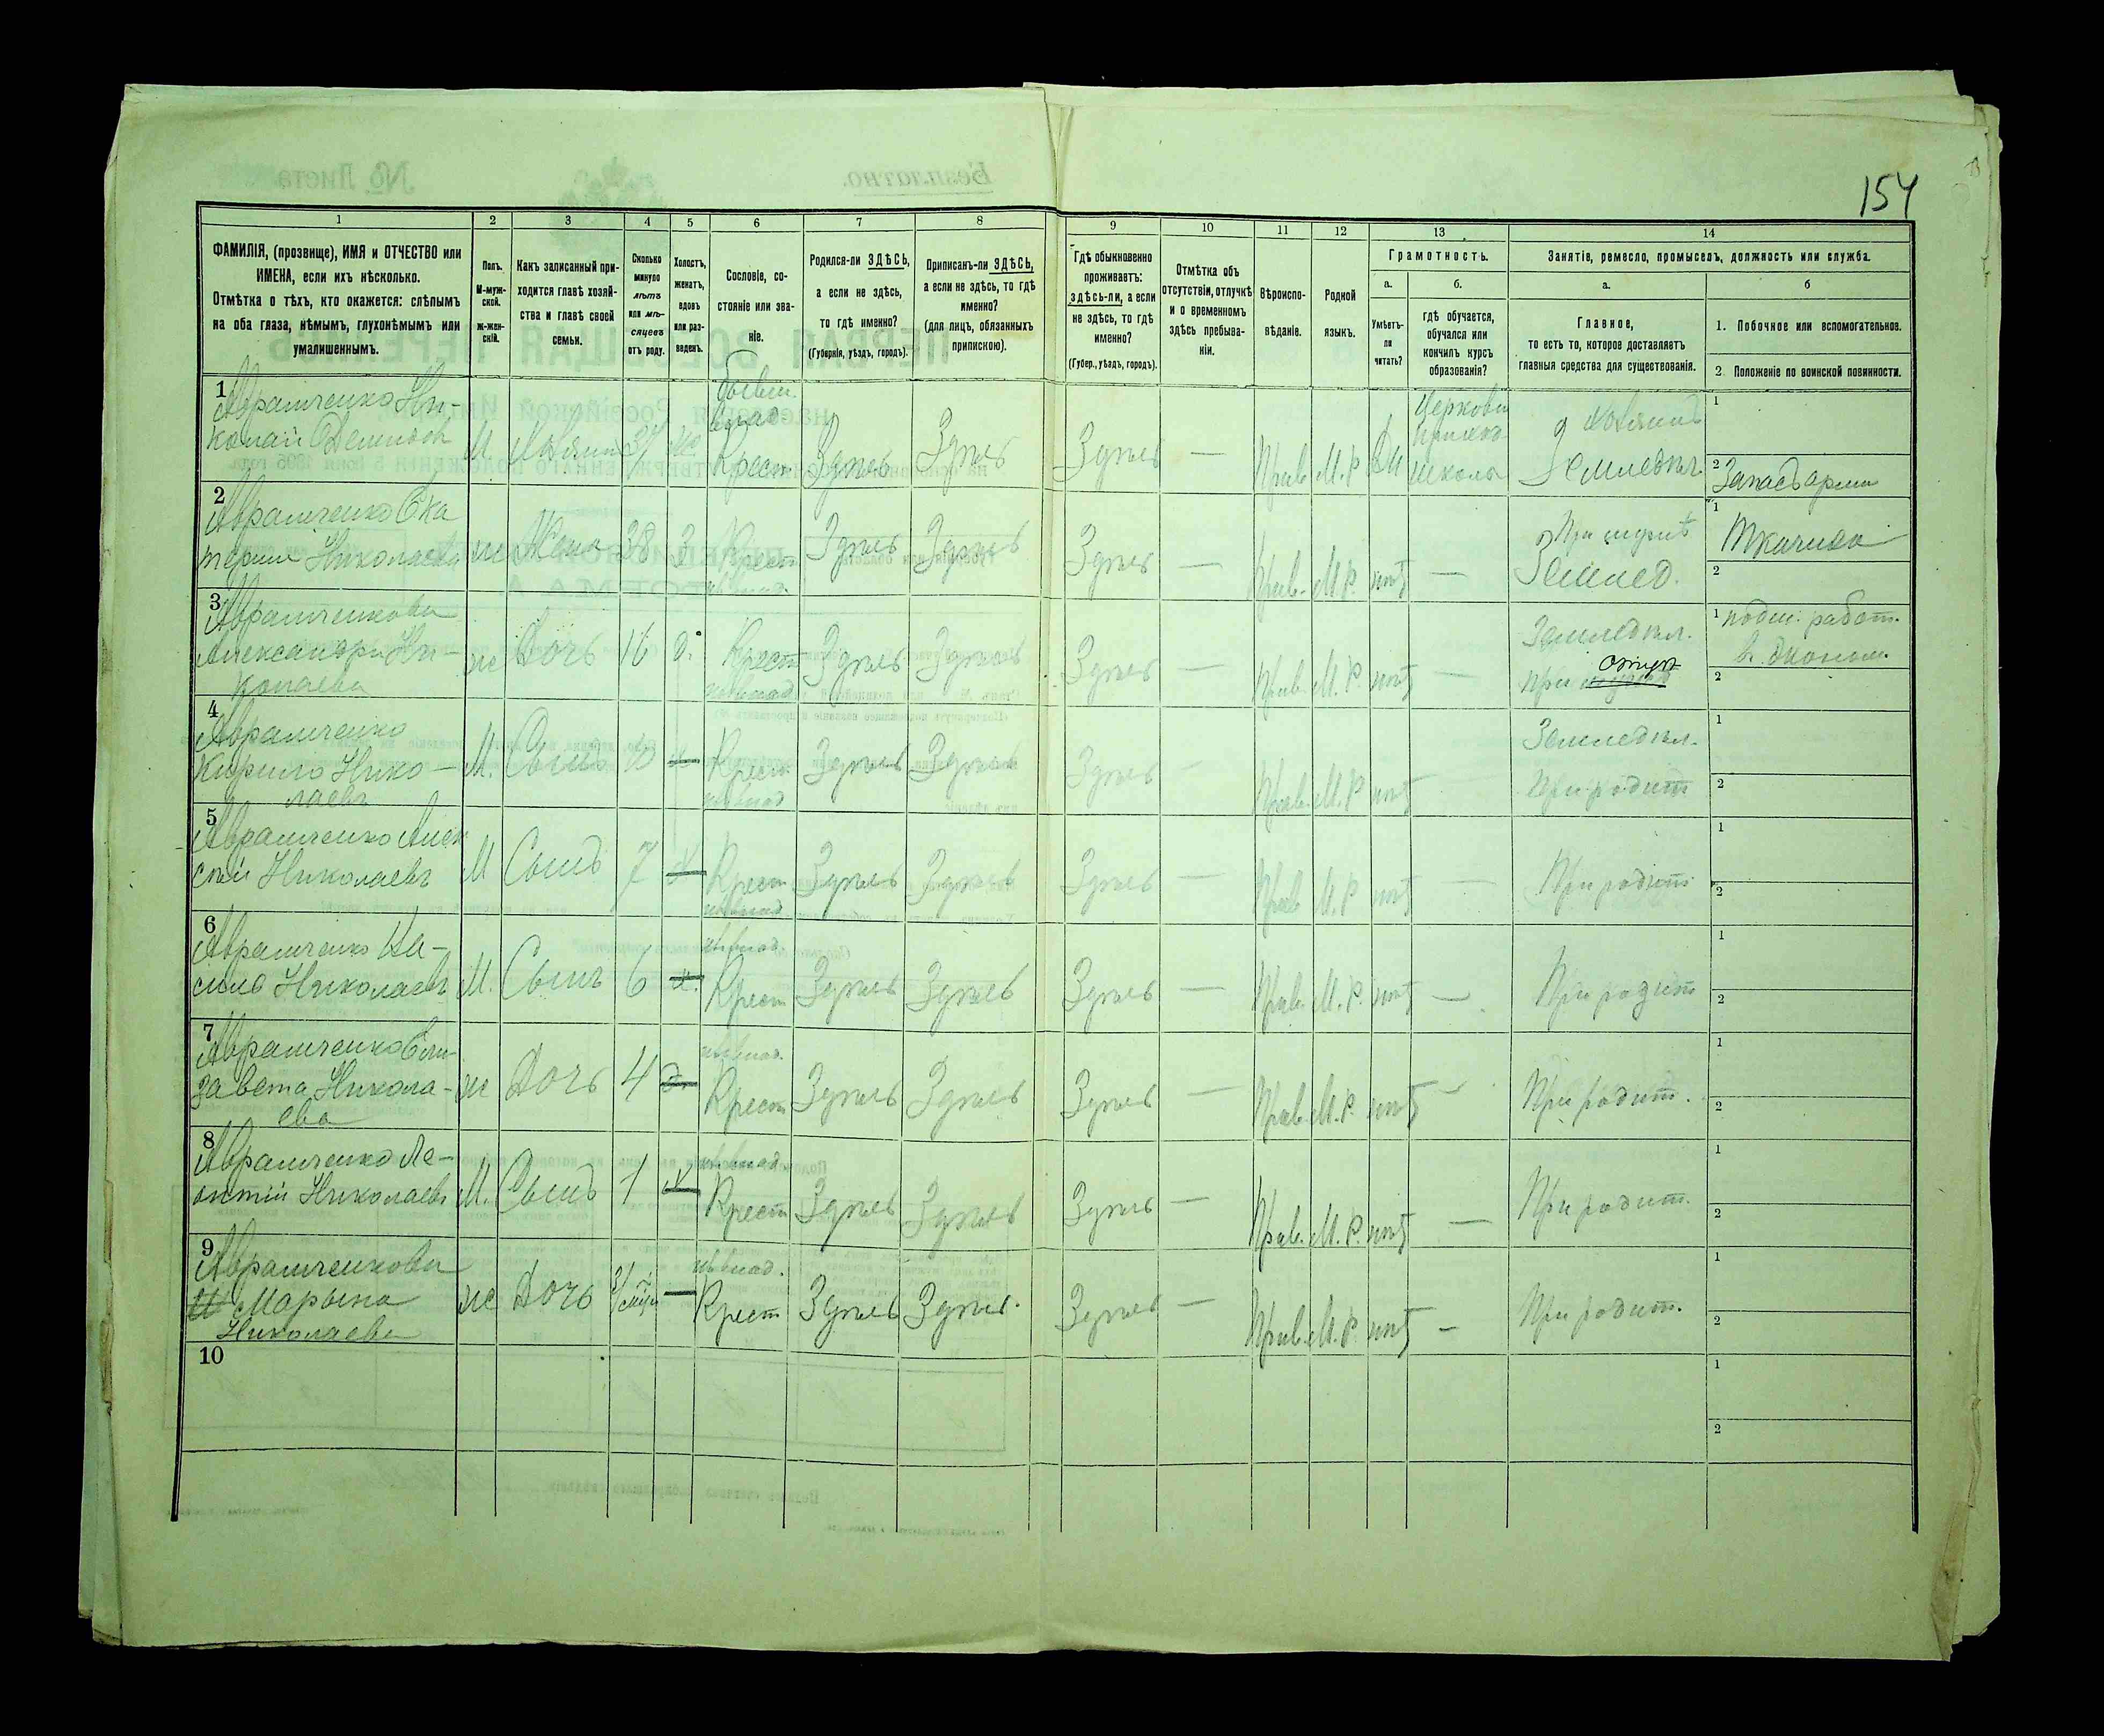 154
1
2
3
4
5
6
7
8
9
10
11
12
13
14
ФАМИЛІЯ, (прозвище), ИМЯ и ОТЧЕСТВО или
ИМЕНА, если ихъ нѣсколько.
Отмѣтка о тѣхъ, кто окажется: слѣпымъ
на оба глаза, нѣмымъ, глухонѣмымъ или
умалишеннымъ.
Полъ.
М-муж-
ской.
ж-жен-
скій.
Какъ записанный при-
ходится главѣ хозяй-
ства и главѣ своей
семьи.
Сколько
минуло
лѣтъ
или мѣ-
сяцевъ
отъ роду.
Холостъ,
женатъ,
вдовъ
или раз-
веденъ.
Сословіе, со-
стояніе или зва-
ніе.
Родился-ли ЗДѢСЬ,
а если не здѣсь,
то гдѣ именно?
(Губернія, уѣздъ, городъ).
Приписанъ-ли ЗДѢСЬ,
а если не здѣсь, то гдѣ
именно?
(для лицъ, обязанныхъ
припискою).
Гдѣ обыкновенно
проживаетъ:
здѣсь-ли, а если
не здѣсь, то гдѣ
именно?
(Губер., уѣздъ, городъ).
Отмѣтка объ
отсутствіи, отлучкѣ
и о временномъ
здѣсь пребыва-
ніи.
Вѣроиспо-
вѣданіе.
Родной
языкъ.
Грамотность.
а.
Умѣетъ-
ли
читать?
б.
гдѣ обучается,
обучался или
кончилъ курсъ
образованія?
Занятіе, ремесло, промыселъ, должность или служба.
а.
Главное,
то есть то, которое доставляетъ
главныя средства для существованія.
б
1. Побочное или вспомогательное.
2. Положеніе по воинской повинности.
1
Абрамченко Ни-
колай
М Хозяинъ
Крест Здѣсь Здѣсь Здѣсь — Прав. М.Р. школы
Хозяинъ
Земледѣл.
1
2 Запасъ арміи
2
Абрамченко Ека
терина Николаева ж Жена 38 З Крест Здѣсь Здѣсь Здѣсь — Прав. М.Р. нѣтъ —
При мужѣ
Землед.
1 Ткачиха
2
3
Абрамченкова
Александра Ни-
колаева
ж Дочь 16 Крест Здѣсь Здѣсь Здѣсь — Прав. М.Р. нѣтъ —
Земледѣл.
При отцѣ
1 работ.
в эконом.
2
4
Абрамченко
Кирило Нико-
лаевъ
М. Сынъ 10 Крест Здѣсь Здѣсь Здѣсь — Прав. М.Р. нѣтъ
Земледѣл.
При родит
1
2
5
Абрамченко Алек
сѣй Николаевъ М Сынъ 7 Крест Здѣсь Здѣсь Здѣсь — Прав М.Р нѣтъ — При родит
1
2
6
Абрамченко Ва-
силь Николаевъ М. Сынъ 6 Крест Здѣсь Здѣсь Здѣсь — Прав. М.Р. нѣтъ — При родит
1
2
7
Абрамченко Ели-
завета Никола-
ева
ж Дочь 4 Крест Здѣсь Здѣсь Здѣсь — Прав. М.Р. нѣтъ — При родит.
1
2
8
Абрамченко Ле-
онтій Николаевъ М. Сынъ 1 Крест Здѣсь Здѣсь Здѣсь — Прав. М.Р. нѣтъ — При родит.
1
2
9
Абрамченкова
Марьяна
Николаева
ж Дочь — Крест Здѣсь Здѣсь. Здѣсь — Прав. М.Р. нѣтъ — При родит.
1
2
10
1
2